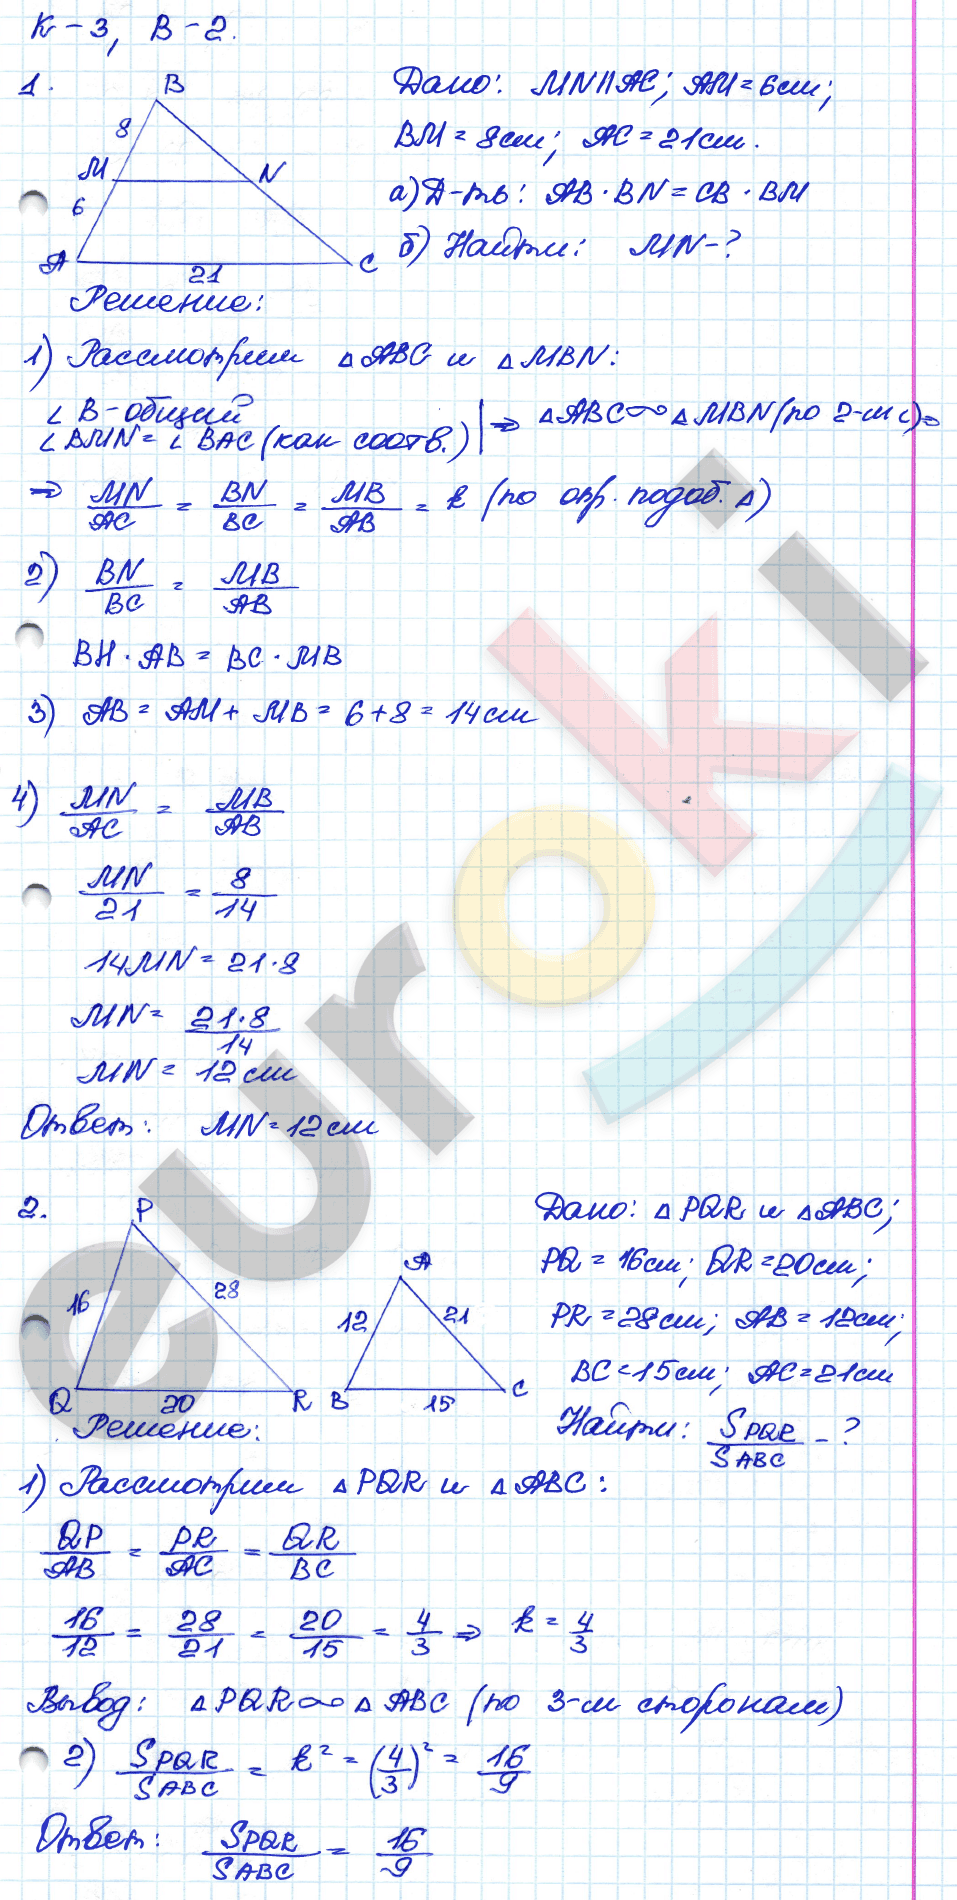 К-3, В-2.
1.
B
8
M
N
6
A
21
C
Дано: MN||AC; AM=6см;
BM=8см; AC=21см.
а) Д-ть: AB·BN=CB·BM
б) Найти: MN-?
Решение:
1) Рассмотрим △ABC и △MBN:
∠B-общий
∠BMN=∠BAC (как соотв.) | ⇒ △ABC∾△MBN (по 2-м ∠) ⇒
⇒ MN/AC = BN/BC = MB/AB = k (по опр. подоб. △)
2) BN/BC = MB/AB
BH·AB=BC·MB
3) AB=AM+MB=6+8=14см
4) MN/AC = MB/AB
MN/21 = 8/14
14MN=21·8
MN= 21·8/14
MN=12см
Ответ: MN=12см
2.
P
16
28
Q
20
R
A
12
21
B
15
C
Дано: △PQR и △ABC;
PQ=16см; QR=20см;
PR=28см; AB=12см;
BC=15см; AC=21см
Найти: SPQR/SABC -?
Решение:
1) Рассмотрим △PQR и △ABC:
QP/AB = PR/AC = QR/BC
16/12 = 28/21 = 20/15 = 4/3 ⇒ k=4/3
Вывод: △PQR∾△ABC (по 3-м сторонам)
2) SPQR/SABC = k² = (4/3)² = 16/9
Ответ: SPQR/SABC = 16/9
euroki